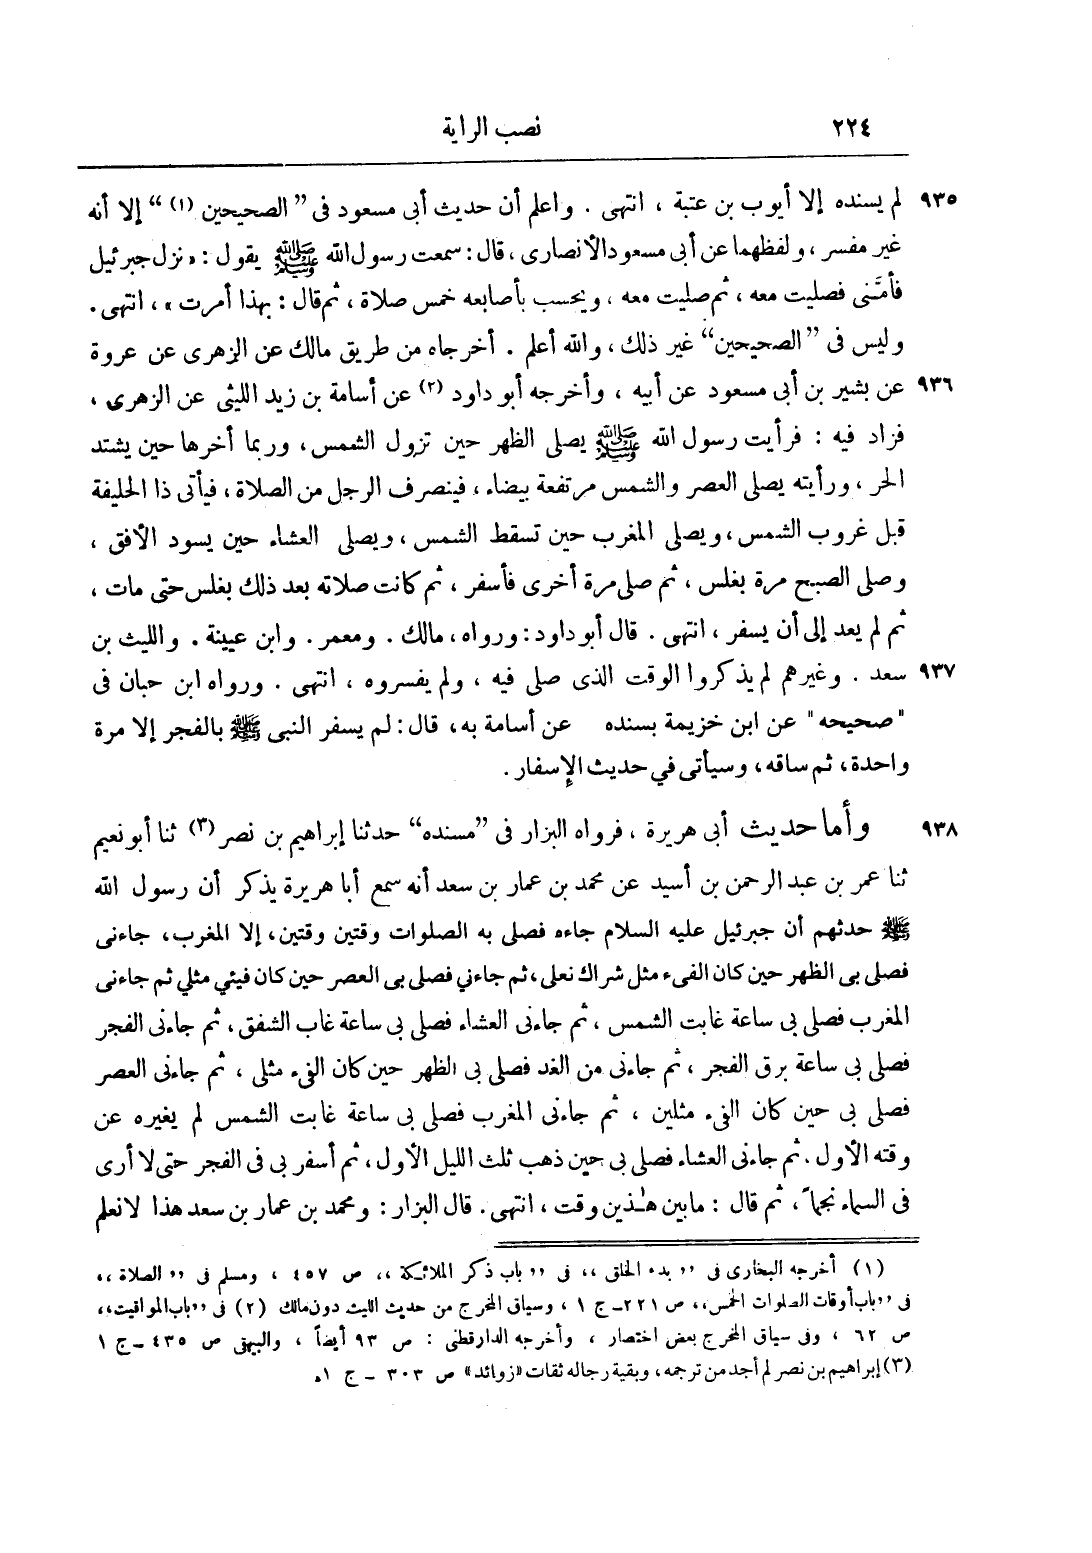 ٢٢٤ نصب الراية
٩٣٥ لم يسنده إلا أيوب بن عتبة ، انتهى . واعلم أن حديث أبى مسعود فى ”الصحيحين (١)“ إلا أنه
غير مفسر ، ولفظهما عن أبى مسعود الأنصارى ، قال : سمعت رسول الله ﷺ يقول : « نزل جبرئيل
فأمَّنى فصليت معه ، ثم صليت معه ، ويحسب بأصابعه خمس صلاة ، ثم قال : بهذا أمرت » ، انتهى .
وليس فى ”الصحيحين“ غير ذلك ، والله أعلم . أخرجاه من طريق مالك عن الزهرى عن عروة
٩٣٦ عن بشير بن أبى مسعود عن أبيه ، وأخرجه أبو داود (٢) عن أسامة بن زيد الليثى عن الزهرى ،
فزاد فيه : فرأيت رسول الله ﷺ يصلى الظهر حين تزول الشمس ، وربما أخرها حين يشتد
الحر ، ورأيته يصلى العصر والشمس مرتفعة بيضاء ، فينصرف الرجل من الصلاة ، فيأتى ذا الحليفة
قبل غروب الشمس ، ويصلى المغرب حين تسقط الشمس ، ويصلى العشاء حين يسود الأفق ،
وصلى الصبح مرة بغلس ، ثم صلى مرة أخرى فأسفر ، ثم كانت صلاته بعد ذلك بغلس حتى مات ،
ثم لم يعد إلى أن يسفر ، انتهى . قال أبو داود : ورواه ، مالك . ومعمر . وابن عيينة . والليث بن
٩٣٧ سعد . وغيرهم لم يذكروا الوقت الذى صلى فيه ، ولم يفسروه ، انتهى . ورواه ابن حبان فى
"صحيحه" عن ابن خزيمة بسنده عن أسامة به ، قال : لم يسفر النبى ﷺ بالفجر إلا مرة
واحدة ، ثم ساقه ، وسيأتى في حديث الإسفار .
٩٣٨ وأما حديث أبى هريرة ، فرواه البزار فى ”مسنده“ حدثنا إبراهيم بن نصر (٣) ثنا أبو نعيم
ثنا عمر بن عبد الرحمن بن أسيد عن محمد بن عمار بن سعد أنه سمع أبا هريرة يذكر أن رسول الله
ﷺ حدثهم أن جبرئيل عليه السلام جاءه فصلى به الصلوات وقتين وقتين ، إلا المغرب ، جاءنى
فصلى بى الظهر حين كان الفىء مثل شراك نعلى ، ثم جاءني فصلى بى العصر حين كان فيئي مثلي ثم جاءنى
المغرب فصلى بى ساعة غابت الشمس ، ثم جاءنى العشاء فصلى بى ساعة غاب الشفق ، ثم جاءنى الفجر
فصلى بى ساعة برق الفجر ، ثم جاءنى من الغد فصلى بى الظهر حين كان الفىء مثلى ، ثم جاءنى العصر
فصلى بى حين كان الفىء مثلين ، ثم جاءنى المغرب فصلى بى ساعة غابت الشمس لم يغيره عن
وقته الأول . ثم جاءنى العشاء فصلى بى حين ذهب ثلث الليل الأول ، ثم أسفر بى فى الفجر حتى لا أرى
فى السماء نجماً ، ثم قال : ما بين هٰذين وقت ، انتهى . قال البزار : ومحمد بن عمار بن سعد هذا لا نعلم
(١) أخرجه البخارى فى ,, بدء الخلق ،، فى ,, باب ذكر الملائكة ،، ص ٤٥٧ ، ومسلم فى ,, الصلاة ،،
فى ,, باب أوقات الصلوات الخمس ،، ص ٢٢١ ـ ج ١ ، وسياق المخرج من حديث الليث دون مالك (٢) فى ,, باب المواقيت ،،
ص ٦٢ ، وفى سياق المخرج بعض اختصار ، وأخرجه الدارقطنى : ص ٩٣ أيضاً ، والبيهقى ص ٤٣٥ ـ ج ١
(٣) إبراهيم بن نصر لم أجد من ترجمه ، وبقية رجاله ثقات «زوائد» ص ٣٠٣ ـ ج ١ هـ